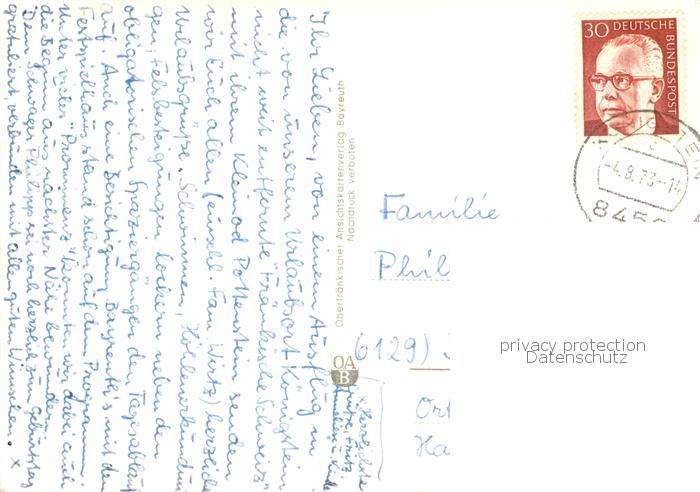 Ihr Lieben, von einem Ausflug in
die von unserem Urlaubsort Königstein
nicht weit entfernte "Fränkische Schweiz"
mit ihrem Kleinod Pottenstein senden
wir Euch allen (einschl. Fam. Wirtz) herzliche
Urlaubsgrüße. Schwimmen, Höhlenerkundun
gen, Fehrbesteigungen lockern neben den
obligatorischen Spaziergängen den Tagesablauf
auf. Auch eine Besichtigung Bayreuths mit dem
Festspielhaus stand schon auf dem Programm
unter vieler Prominenz konnten wir dabei auch
die Begum aus nächster Nähe bewundern.
Dem Schwager Philipp sei noch herzlich zum Geburtstag
gratuliert, verbunden mit allen guten Wünschen. x
x Herzlichste
Grüße, Fritz
Oberfränkischer Ansichtskartenverlag Bayreuth
Nachdruck verboten
OA
B
30 DEUTSCHE
BUNDESPOST
-4.8.73-14
845
Familie
Phil
6129)
Ort
Ha
privacy protection
Datenschutz